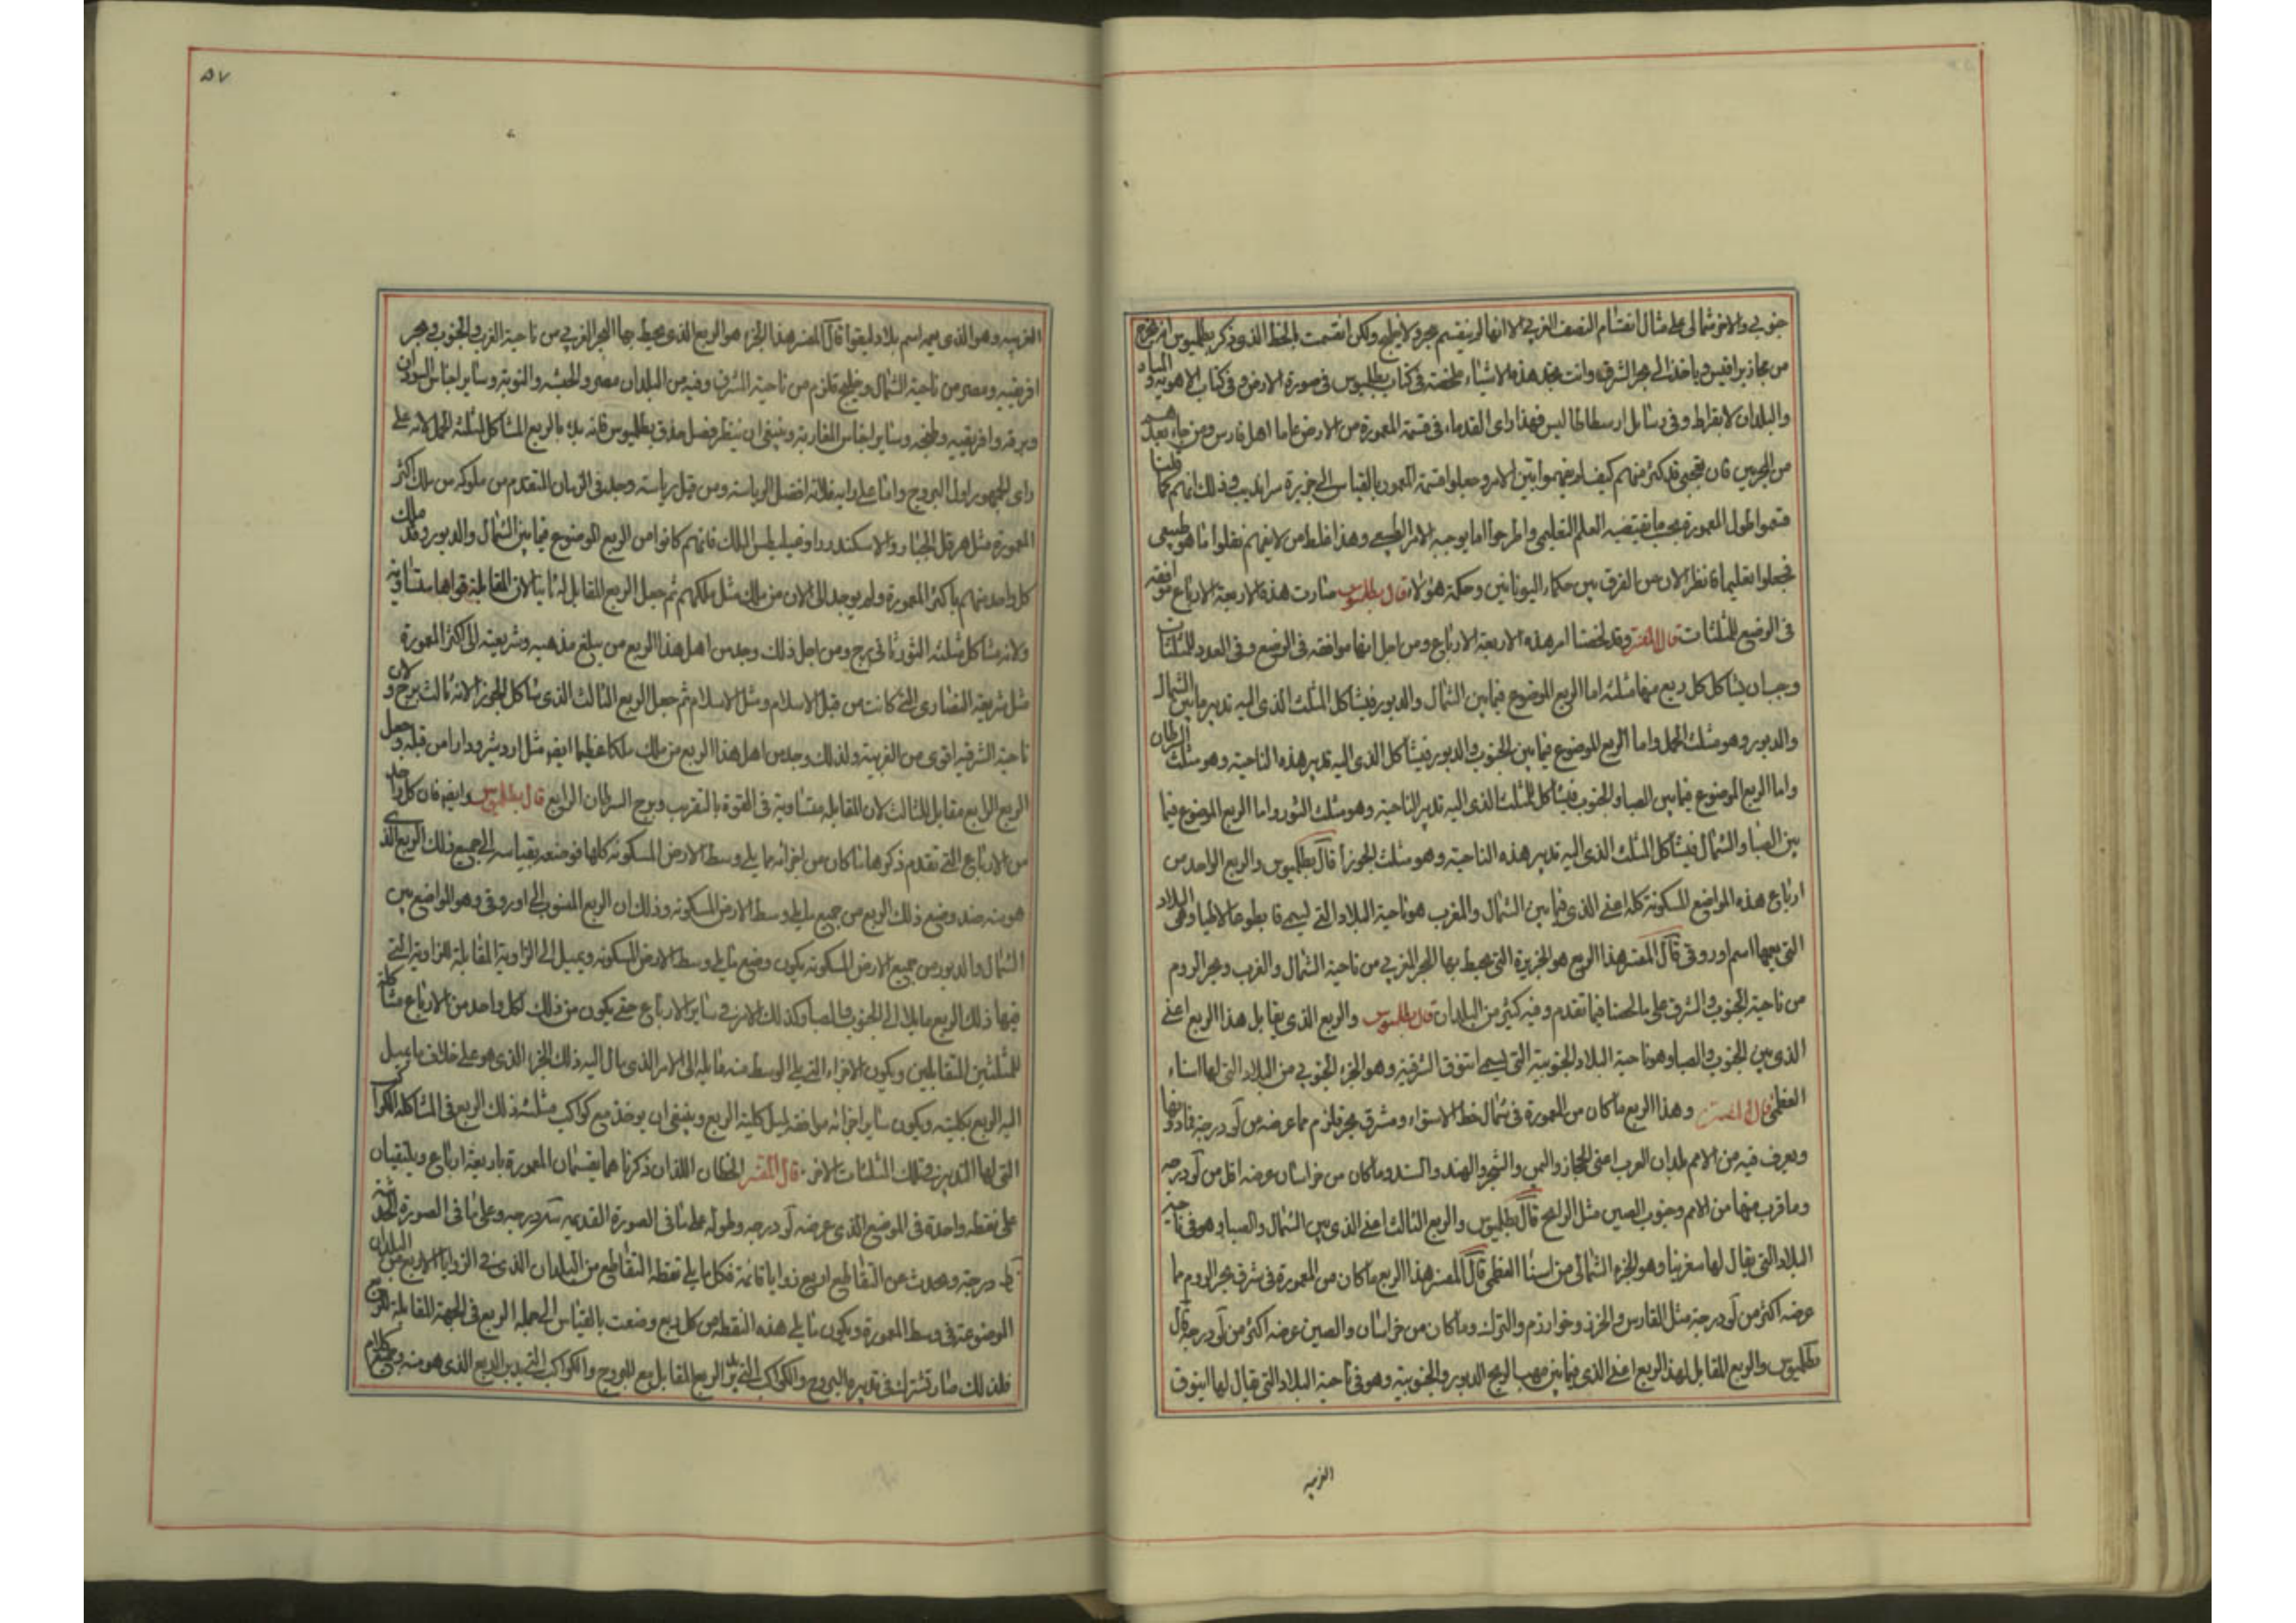 جنوبي والاخر شمالي على مثال انقسام النصف الغربي الا انها لم ينقسم ببحر ولا خليج ولكن انقسمت بالخط الذي ذكر بطلميوس انه يخرج
من وياخذ الى بحر الشرق وانت تجد هذه الاشياء ملخصة في كتاب بطلميوس في صورة الارض وفي كتاب الاهوية والمياه
والبلدان لابقراط وفي رسائل ارسطاطاليس فهذا راى القدماء في قسمة المعمورة من الارض فاما اهل فارس ومن جاء بعدهم
من فان تعجبي قد كثر منهم كيف لم يفهموا هذا الامر وجعلوا قسمة المعمور بالقياس الى جزيرة سرانديب وذلك انهم كما قلنا
قسموا طول المعمورة بحسب ما يقتضيه العلم التعليمي واطرحوا ما يوجبه الامر الطبيعي وهذا غلط من لانهم نقلوا ما هو طبيعي
فجعلوا تعليما فانظر الان من الفرق بين حكماء اليونانيين وحكمة هؤلاء قال بطلميوس صارت هذه الاربعة الارباع موافقة
في الوضع للمثلثات قال المفسر وقد لخصنا امر هذه الاربعة الارباع ومن اجل انها موافقة في الوضع وفي العدد للمثلثات
وجب ان يشاكل كل ربع منها مثلثه اما الربع الموضوع فيما بين الشمال والدبور فيشاكل المثلث الذي اليه تدبير ما بين الشمال
والدبور وهو مثلث الحمل واما الربع الموضوع فيما بين الجنوب والدبور فيشاكل الذي اليه تدبير هذه الناحية وهو مثلث السرطان
واما الربع الموضوع فيما بين الصبا والجنوب فيشاكل المثلث الذي اليه تدبير الناحية وهو مثلث الثور واما الربع الموضوع فيما
بين الصبا والشمال فيشاكل المثلث الذي اليه تدبير هذه الناحية وهو مثلث الجوزا قال بطلميوس والربع الواحد من
ارباع هذه المواضع المسكونة كلها اعني الذي فيما بين الشمال والمغرب هو ناحية البلاد التي تسمى وهي البلاد
التي يعمها اسم اوروفى قال المفسر هذا الربع هو الجزيرة التي يحيط بها البحر الغربي من ناحية الشمال والغرب وبحر الروم
من ناحية الجنوب والشرق على ما لخصنا فيما تقدم وفيه كثير من البلدان قال بطلميوس والربع الذي يقابل هذا الربع اعني
الذي بين الجنوب والصبا وهو ناحية البلاد الجنوبية التي تسمى اتنوفا الشرقية وهو الجزء الجنوبي من البلاد التي لها اسناء
العظمى قال المفسر وهذا الربع ما كان من المعمورة في شمال خط الاستواء ومشرق بحر قلزم مما عرضه من لو درجة فما دونها
ويعرف فيه من الامم بلدان العرب اعني الحجاز واليمن والشحر والهند والسند وما كان من خراسان عرضه اقل من لو درجة
وما قرب منها من الامم وجنوب الصين مثل قال بطلميوس والربع الثالث اعني الذي بين الشمال والصبا وهو في ناحية
البلاد التي يقال لها سغرينا وهو الجزء الشمالي من اسنا العظمى قال المفسر هذا الربع ما كان من المعمورة في شرق بحر الروم مما
عرضه اكثر من لو درجة مثل الفارس والخزر وخوارزم والترك وما كان من خراسان والصين عرضه اكثر من لو درجة قال
بطلميوس والربع المقابل لهذا الربع اعني الذي فيما بين مهب الريح الدبور والجنوبية وهو في ناحية البلاد التي يقال لها اتنوفا
الغربيه
٥٧
الغربيه وهو الذي يعمه اسم بلاد ليقوا قال المفسر هذا الجزء هو الربع الذي يحيط بها البحر الغربي من ناحية الغرب والجنوب وبحر
افريقيه ومصر من ناحية الشمال وخليج قلزم من ناحية المشرق وفيه من البلدان مصر والحبشه والنوبة وساير اجناس السودان
وبرقه وافريقيه وطنجه وساير اجناس المغاربة وينبغي ان ينظر فضل حذق بطلميوس فانه بدا بالربع المشاكل لمثلثة الحمل لانه على
راى الجمهور اول البروج واما على رايه فلانه افضل الرياسة ومن قبل رياسته وجد في الزمان المتقدم من ملوكه من ملك اكثر
المعمورة مثل هرقل الجبار والاسكندر وفيليس الملك فانهم كانوا من الربع الموضوع فيما بين الشمال والدبور وقد ملك
كل واحد منهم باكثر المعمورة ولم يوجد الى الان من ملك مثل ملكهم ثم جعل الربع المقابل له ثانيا لان المقابلة قواها متساوية
ولانه مشاكل مثلثه الثور ثاني برج ومن اجل ذلك وجد من اهل هذا الربع من يبلغ مذهبه وشريعته الى اكثر المعمورة
مثل شريعة النصارى التي كانت من قبل الاسلام ومثل الاسلام ثم جعل الربع الثالث الذي شاكل الجوزا لانه ثالث برج ولان
ناحية الشرقيه اقوى من الغربية ولذلك وجد من اهل هذا الربع من ملك ملكا عظيما ايضا مثل اردشير ودارا من قبله وجعل
الربع الرابع مقابل للثالث لان المقابله متساوية في القوة بالتقريب وبرج السرطان الرابع قال بطلميوس وايضا فان كل واحد
من الارباع التي تقدم ذكرها ما كان من اجزائه مما يلي وسط الارض المسكونة كلها فوضعه بقياسه الى جميع ذلك الربع الذي
هو منه ضد وضع ذلك الربع من جميع ما يلي وسط الارض المسكونه وذلك ان الربع المنسوب الى اوروفى وهو الواضع بين
الشمال والدبور من جميع الارض المسكونه يكون وضع ما يلي وسط الارض المسكونه ويميل الى الزاوية المقابلة للزاوية التي
فيها ذلك الربع مايلا الى الجنوب والصبا وكذلك الامر في ساير الارباع حتى يكون من ذلك لكل واحد من الارباع مشاكلة
للمثلثين المتقابلين ويكون الاجزاء التي يلي الوسط منه مايله الى الامر الذي مال اليه ذلك الجزء الذي هو على خلاف ما يميل
اليه الربع بكليته ويكون ساير اجزائه موافقه لميل كلية الربع وينبغي ان يوخذ مع كواكب مثلثه ذلك الربع في المشاكلة الكواكب
التي لها التدبير في تلك المثلثات الاخر قال المفسر الخطان اللذان ذكرنا هما يقسمان المعمورة باربعة ارباع ويلتقيان
على نقطه واحدة في الموضع الذي عرضه لو درجه وطوله على ما في الصورة القديمه درجه وعلى ما في الصورة الحديثة
درجة ويحدث عن التقاطع اربع زوايا قائمة فكل ما يلي نقطه التقاطع من البلدان الذي في الزوايا الاربع من البلدان
الموضوعة في وسط المعمورة ويكون ما يلي هذه النقطه من كل ربع وضعت بالقياس الى جملة الربع في الجهة المقابلة للربع
فلذلك صار تشترك في تدبيره البروج والكواكب التي يدبر الربع المقابل مع البروج والكواكب التي يدبر الربع الذي هو منه